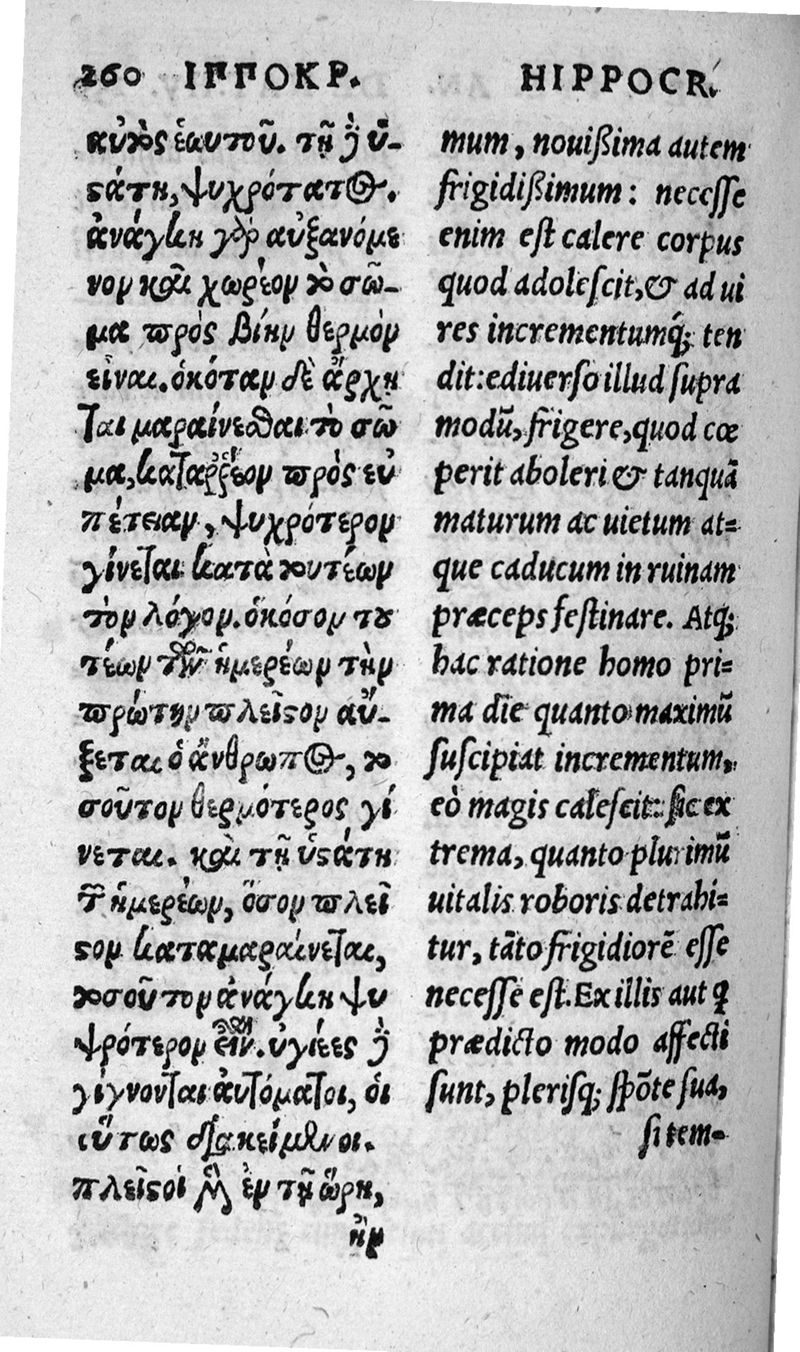 260 ΙΠΠΟΚΡ.
κυτὸς ἑωυτοῦ. τῇ δὲ ὑ-
στάτῃ, ψυχρότατος.
ἀνάγκη γὰρ αὐξανόμε
νον καὶ χωρέον τὸ σῶ-
μα πρὸς βίην θερμὸν
εἶναι. ὁκόταν δὲ ἄρχη
ται μαραίνεσθαι τὸ σῶ
μα, καταρρέον πρὸς εὐ
πέτειαν, ψυχρότερον
γίνεται κατὰ τουτέων
τὸν λόγον. ὁκόσον του
τέων τῶν ἡμερέων τὴν
πρώτην πλεῖστον αὔ-
ξεται ὁ ἄνθρωπος, το
σοῦτον θερμότερος γί
νεται. καὶ τῇ ὑστάτη
τῶν ἡμερέων, ὅσον πλεῖ
στον καταμαραίνεται,
τοσοῦτον ἀνάγκη ψυ
ψρότερον εἶναι. ὑγιέες δὲ
γίγνονται αὐτόματοι, οἱ
οὕτως διακείμενοι.
πλεῖστοί μὲν ἐν τῇ ὥρῃ,
ἣν
HIPPOCR.
mum, nouißima autem
frigidißimum: necesse
enim est calere corpus
quod adolescit, & ad ui
res incrementumq́; ten
dit: ediuerso illud supra
modũ, frigere, quod cœ
perit aboleri & tanquã
maturum ac uietum at=
que caducum in ruinam
præceps festinare. Atq;
hac ratione homo pri=
ma die quanto maximũ
suscipiat incrementum,
eò magis calescit: sic ex
trema, quanto plurimũ
uitalis roboris detrahi=
tur, tãto frigidiorẽ esse
necesse est. Ex illis aut ꝗ
prædicto modo affecti
sunt, plerisq; spõte sua,
si tem-